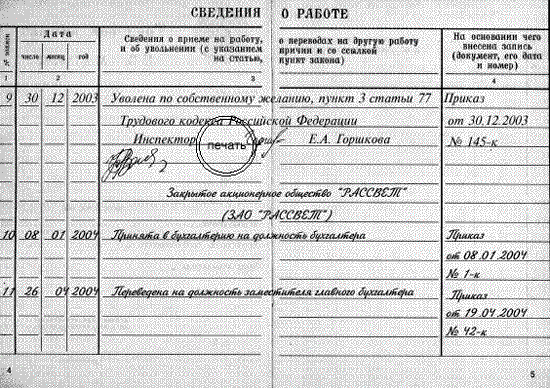 СВЕДЕНИЯ О РАБОТЕ
№ записи
Дата
число месяц год
Сведения о приеме на работу, о переводах на другую работу
и об увольнении (с указанием причин и со ссылкой
на статью, пункт закона)
На основании чего
внесена запись
(документ, его дата
и номер)
1 2 3 4
9 30 12 2003 Уволена по собственному желанию, пункт 3 статьи 77 Приказ
Трудового кодекса Российской Федерации от 30.12.2003
Инспектор печать Е.А. Горшкова № 145-к
Закрытое акционерное общество "РАССВЕТ"
(ЗАО "РАССВЕТ")
10 08 01 2004 Принята в бухгалтерию на должность бухгалтера Приказ
от 08.01.2004
№ 1-к
11 26 04 2004 Переведена на должность заместителя главного бухгалтера Приказ
от 19.04.2004
№ 42-к
4 5